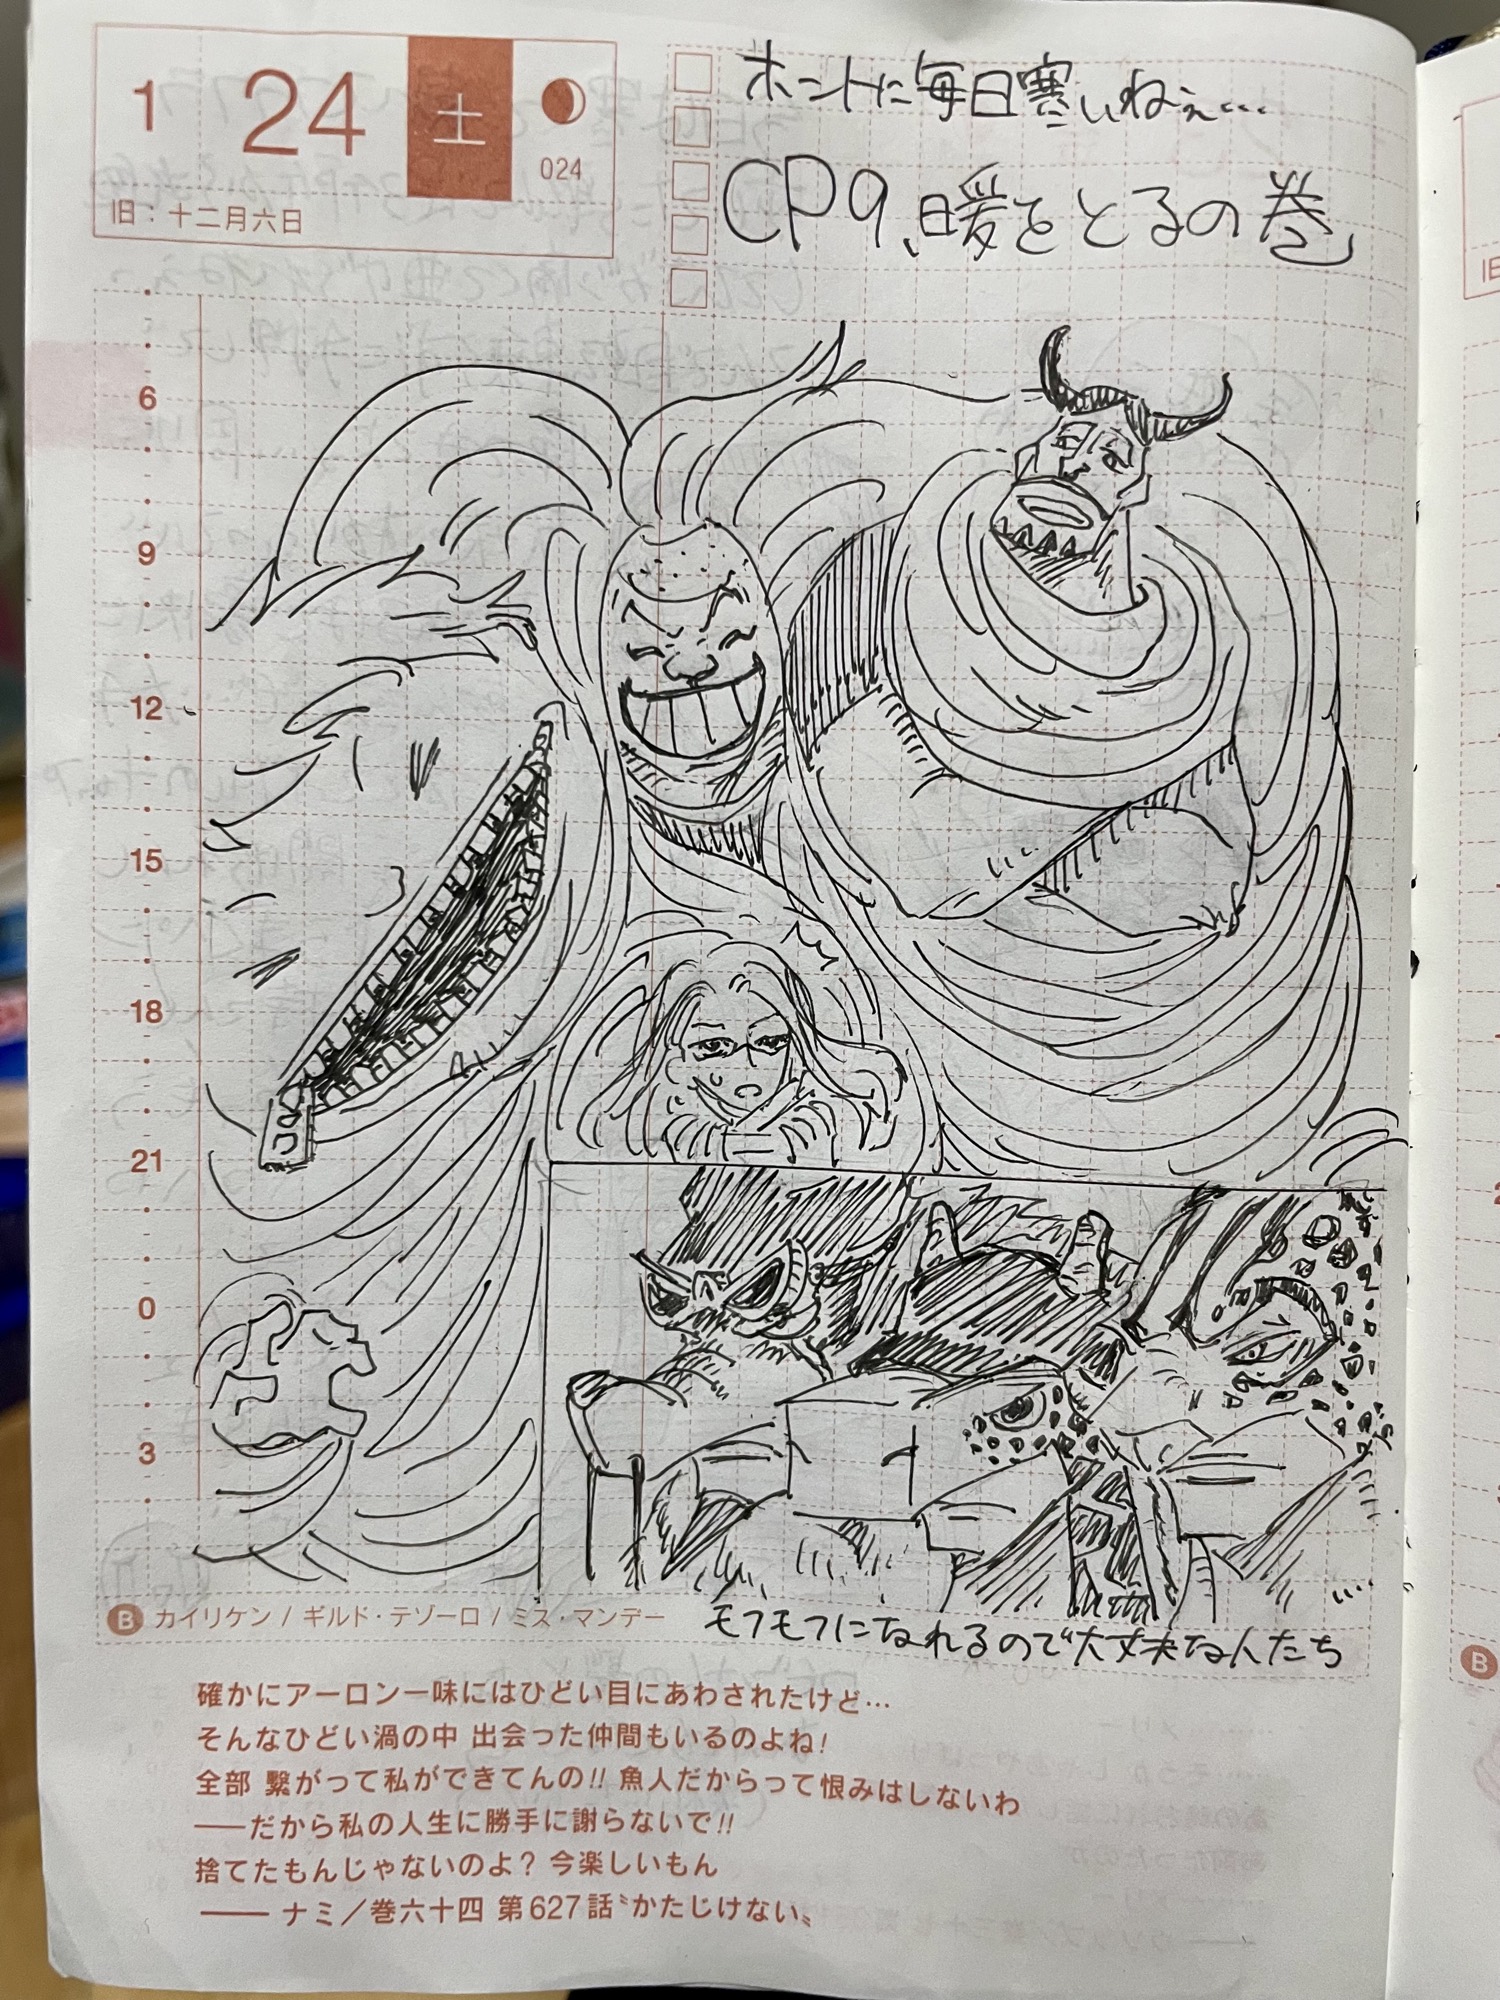 1 24 土
024
旧：十二月六日
ホントに毎日寒いねぇ…
CP9、暖をとるの巻
6
9
12
15
18
21
0
3
B カイリケン / ギルド・テゾーロ / ミス・マンデー
モフモフになれるので大丈夫な人たち
確かにアーロン一味にはひどい目にあわされたけど…
そんなひどい渦の中 出会った仲間もいるのよね!
全部 繋がって私ができてんの!! 魚人だからって恨みはしないわ
──だから私の人生に勝手に謝らないで!!
捨てたもんじゃないのよ? 今楽しいもん
── ナミ／巻六十四 第627話〝かたじけない〟